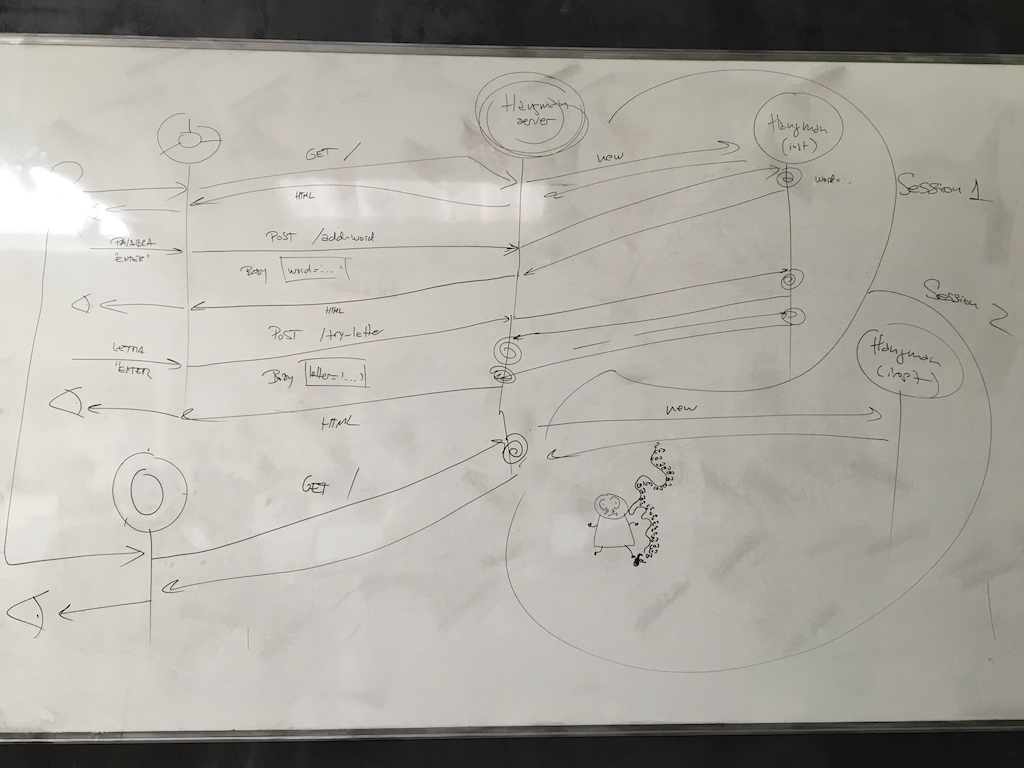 Hangman
server
Hangman
(inst)
GET /
new
HTML
word=...
Session 1
PALABRA
"ENTER"
POST /add-word
BODY word=...
HTML
Session 2
POST /try-letter
LETRA
"ENTER
BODY letter=...
Hangman
HTML
new
GET /